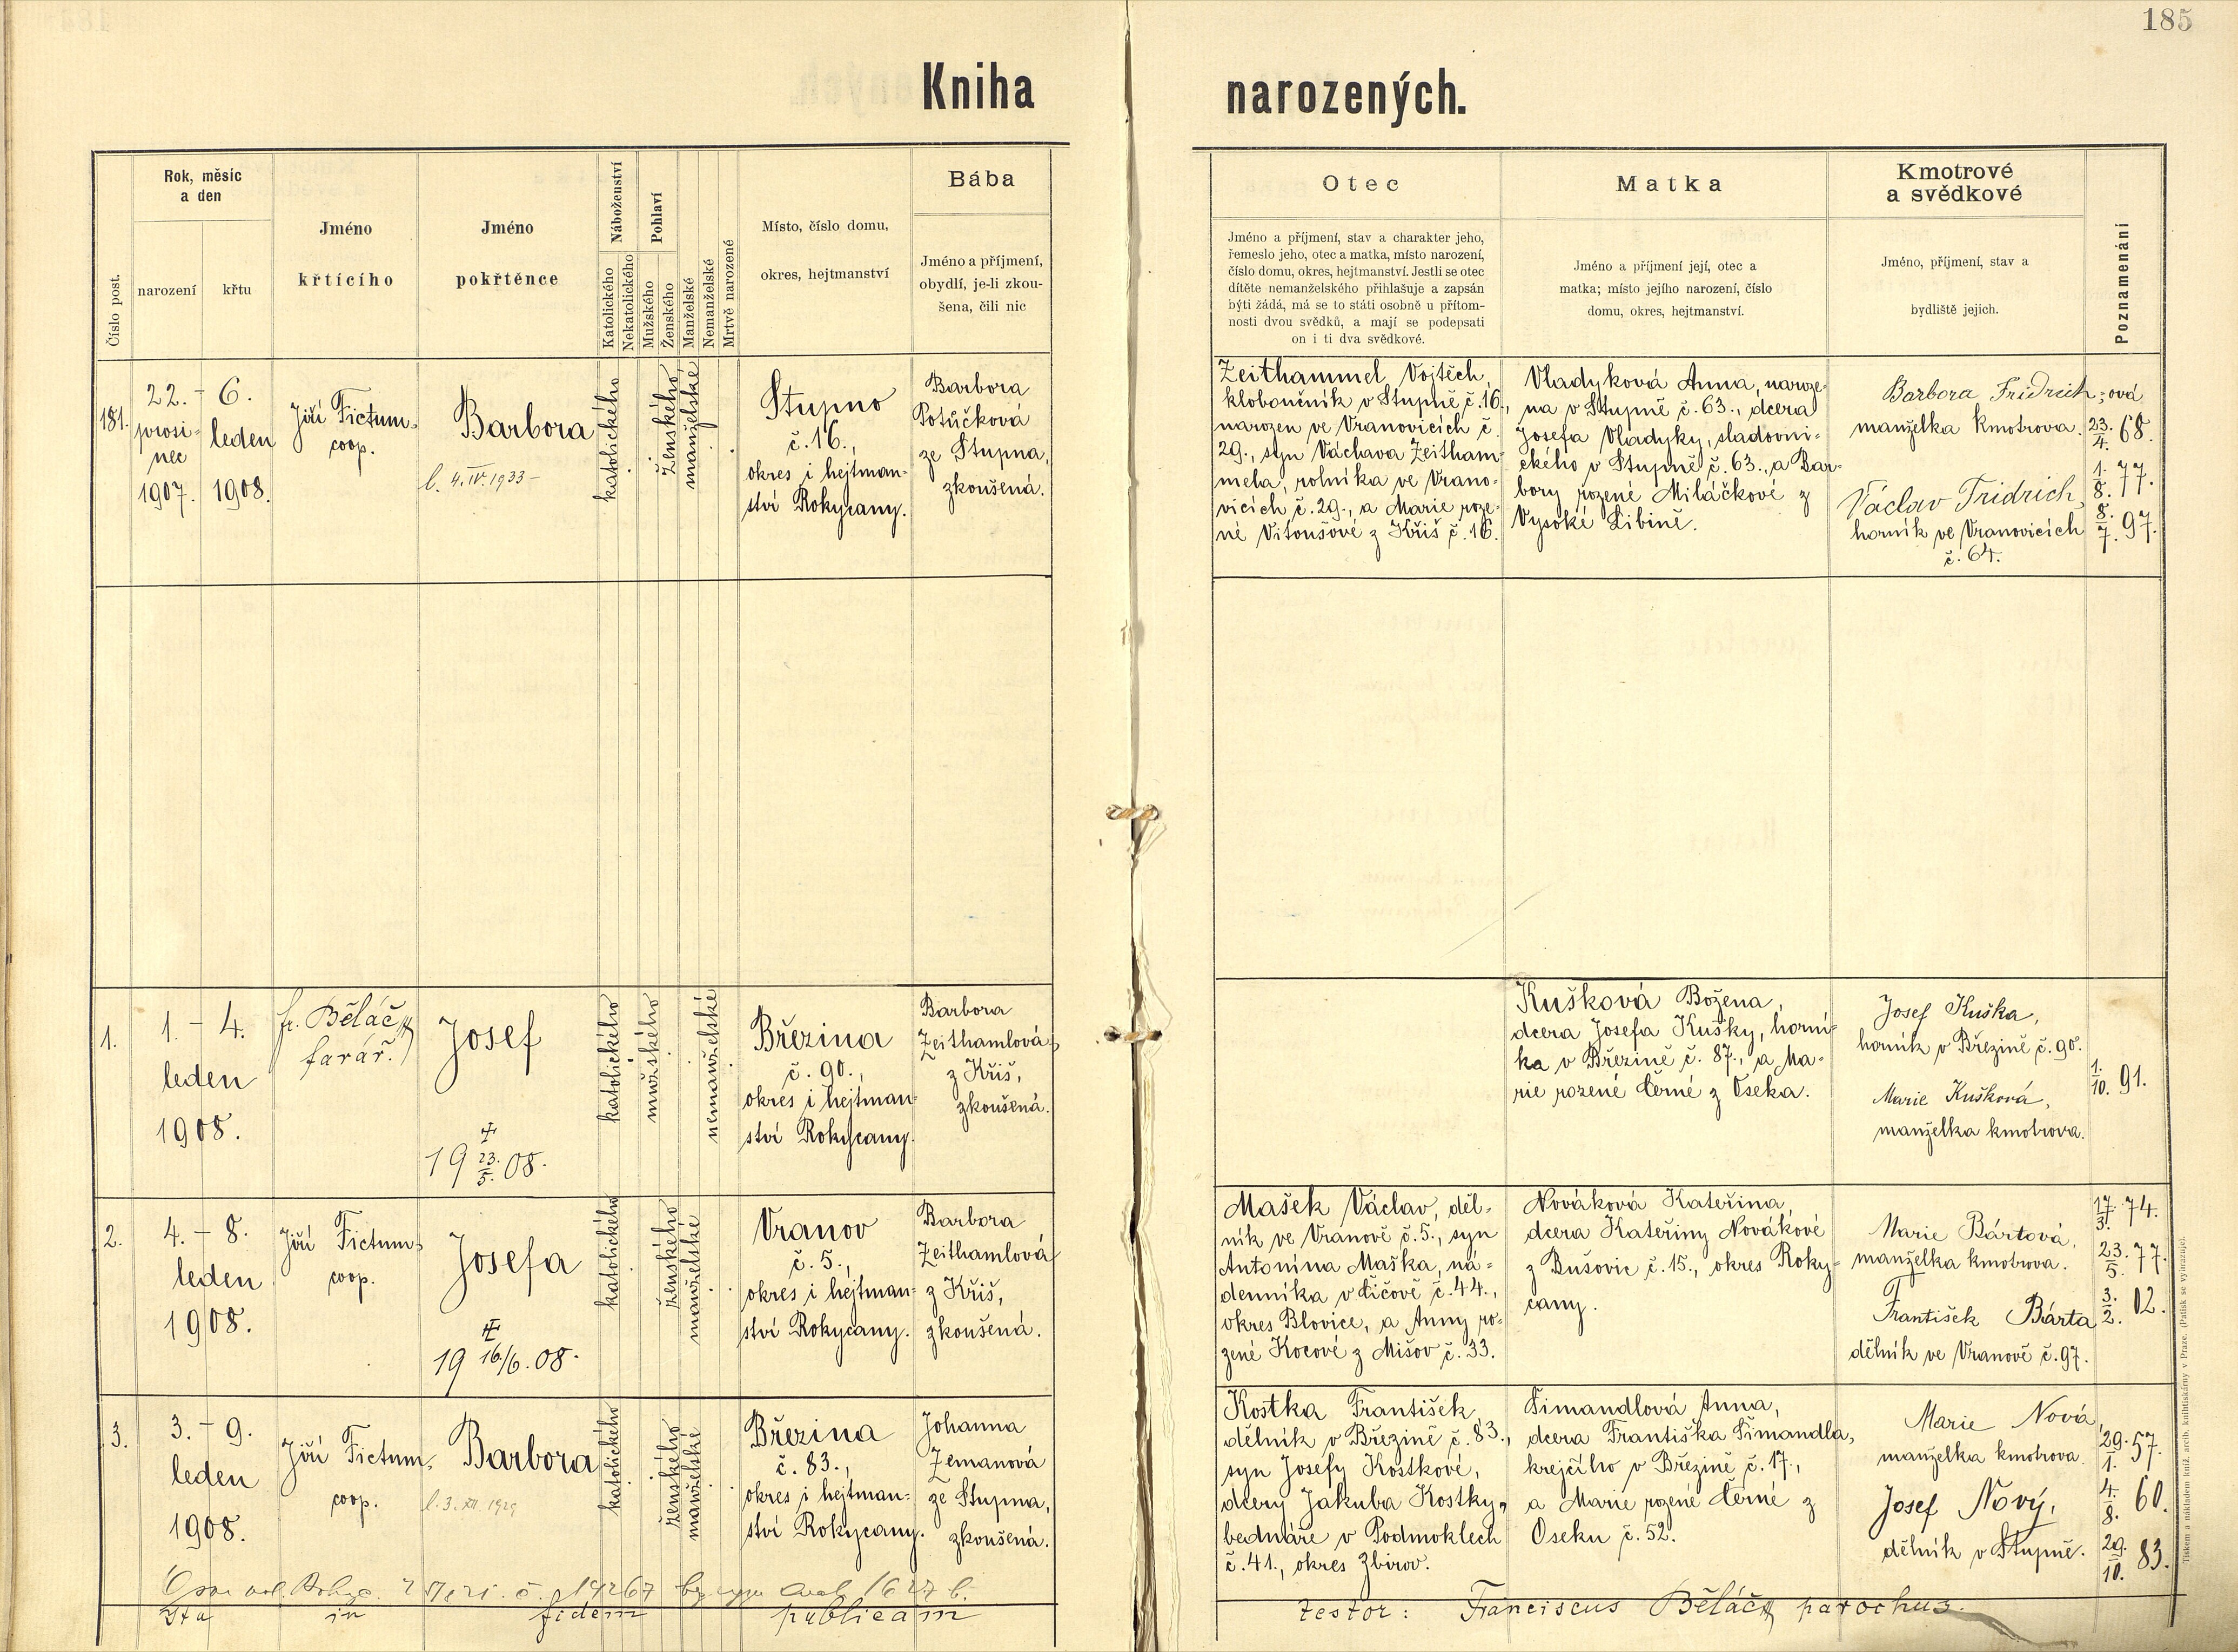 185
Kniha narozených.
Číslo post.
Rok, měsíc
a den
narození
křtu
Jméno
křtícího
Jméno
pokřtěnce
Náboženství
Katolického
Nekatolického
Pohlaví
Mužského
Ženského
Manželské
Nemanželské
Mrtvě narozené
Místo, číslo domu,
okres, hejtmanství
Bába
Jméno a příjmení,
obydlí, je-li zkou-
šena, čili nic
Otec
Jméno a příjmení, stav a charakter jeho,
řemeslo jeho, otec a matka, místo narození,
číslo domu, okres, hejtmanství. Jestli se otec
dítěte nemanželského přihlašuje a zapsán
býti žádá, má se to státi osobně u přítom-
nosti dvou svědků, a mají se podepsati
on i ti dva svědkové.
Matka
Jméno a příjmení její, otec a
matka; místo jejího narození, číslo
domu, okres, hejtmanství.
Kmotrové
a svědkové
Jméno, příjmení, stav a
bydliště jejich.
Poznamenání
181.
22. - 6.
prosi- leden
nec
1907. 1908.
Jiří Fictum,
coop.
Barbora
l. 4.IV.1933 -
katolického
ženského
manželské
Stupno
č. 16.,
okres i hejtman-
ství Rokycany.
Barbora
Potůčková
ze Stupna,
zkoušená.
Zeithammel Vojtěch,
kloboučník v Stupně č. 16.,
narozen ve Vranovicích č.
29., syn Václava Zeitham-
mela, rolníka ve Vrano-
vicích č. 29., a Marie roze-
né Vitoušové z Kříš č. 16.
Vladyková Anna, naroze-
na v Stupně č. 63., dcera
Josefa Vladyky, sladovni-
ckého v Stupně č. 63., a Bar-
bory rozené Miláčkové z
Vysoké Libině.
Barbora Fridrich-ová
manželka kmotrova.
Václav Fridrich,
horník ve Vranovicích
č. 64.
23./4. 68.
1./8. 77.
8./7. 97.
1.
1. - 4.
leden
1908.
fr. Běláč,
farář.
Josef
†
19 23./5. 08.
katolického
mužského
nemanželské
Březina
č. 90.,
okres i hejtman-
ství Rokycany.
Barbora
Zeithamlová
z Kříš,
zkoušená.
Kušková Božena,
dcera Josefa Kušky, horní-
ka v Březině č. 87., a Ma-
rie rozené Černé z Oseka.
Josef Kuška,
horník v Březině č. 90.
Marie Kušková,
manželka kmotrova.
1./10. 91.
2.
4. - 8.
leden
1908.
Jiří Fictum,
coop.
Josefa
†
19 16./6. 08.
katolického
ženského
manželské
Vranov
č. 5.,
okres i hejtman-
ství Rokycany.
Barbora
Zeithamlová
z Kříš,
zkoušená.
Mašek Václav, děl-
ník ve Vranově č. 5., syn
Antonína Maška, ná-
denníka v Čičově č. 44.,
okres Blovice, a Anny ro-
zené Kocové z Mišov č. 33.
Nováková Kateřina,
dcera Kateřiny Novákové
z Bušovic č. 15., okres Roky-
cany.
Marie Bártová,
manželka kmotrova.
František Bárta
dělník ve Vranově č. 97.
17./3. 74.
23./5. 77.
3./2. 02.
3.
3. - 9.
leden
1908.
Jiří Fictum,
coop.
Barbora
l. 3. XII. 1929
katolického
ženského
manželské
Březina
č. 83.,
okres i hejtman-
ství Rokycany.
Johanna
Zemanová
ze Stupna,
zkoušená.
Kostka František,
dělník v Březině č. 83.,
syn Josefy Kostkové,
dcery Jakuba Kostky,
bednáře v Podmoklech
č. 41., okres Zbirov.
Šimandlová Anna,
dcera Františka Šimandla,
krejčího v Březině č. 17.,
a Marie rozené Černé z
Oseku č. 52.
Marie Nová,
manželka kmotrova.
Josef Nový,
dělník v Stupně.
29./1. 57.
4./8. 60.
29./10. 83.
Ita in fidem publicam testor: Franciscus Běláč, parochus.
Tiskem a nákladem kníž. arcib. knihtiskárny v Praze. (Patisk se vyhrazuje).